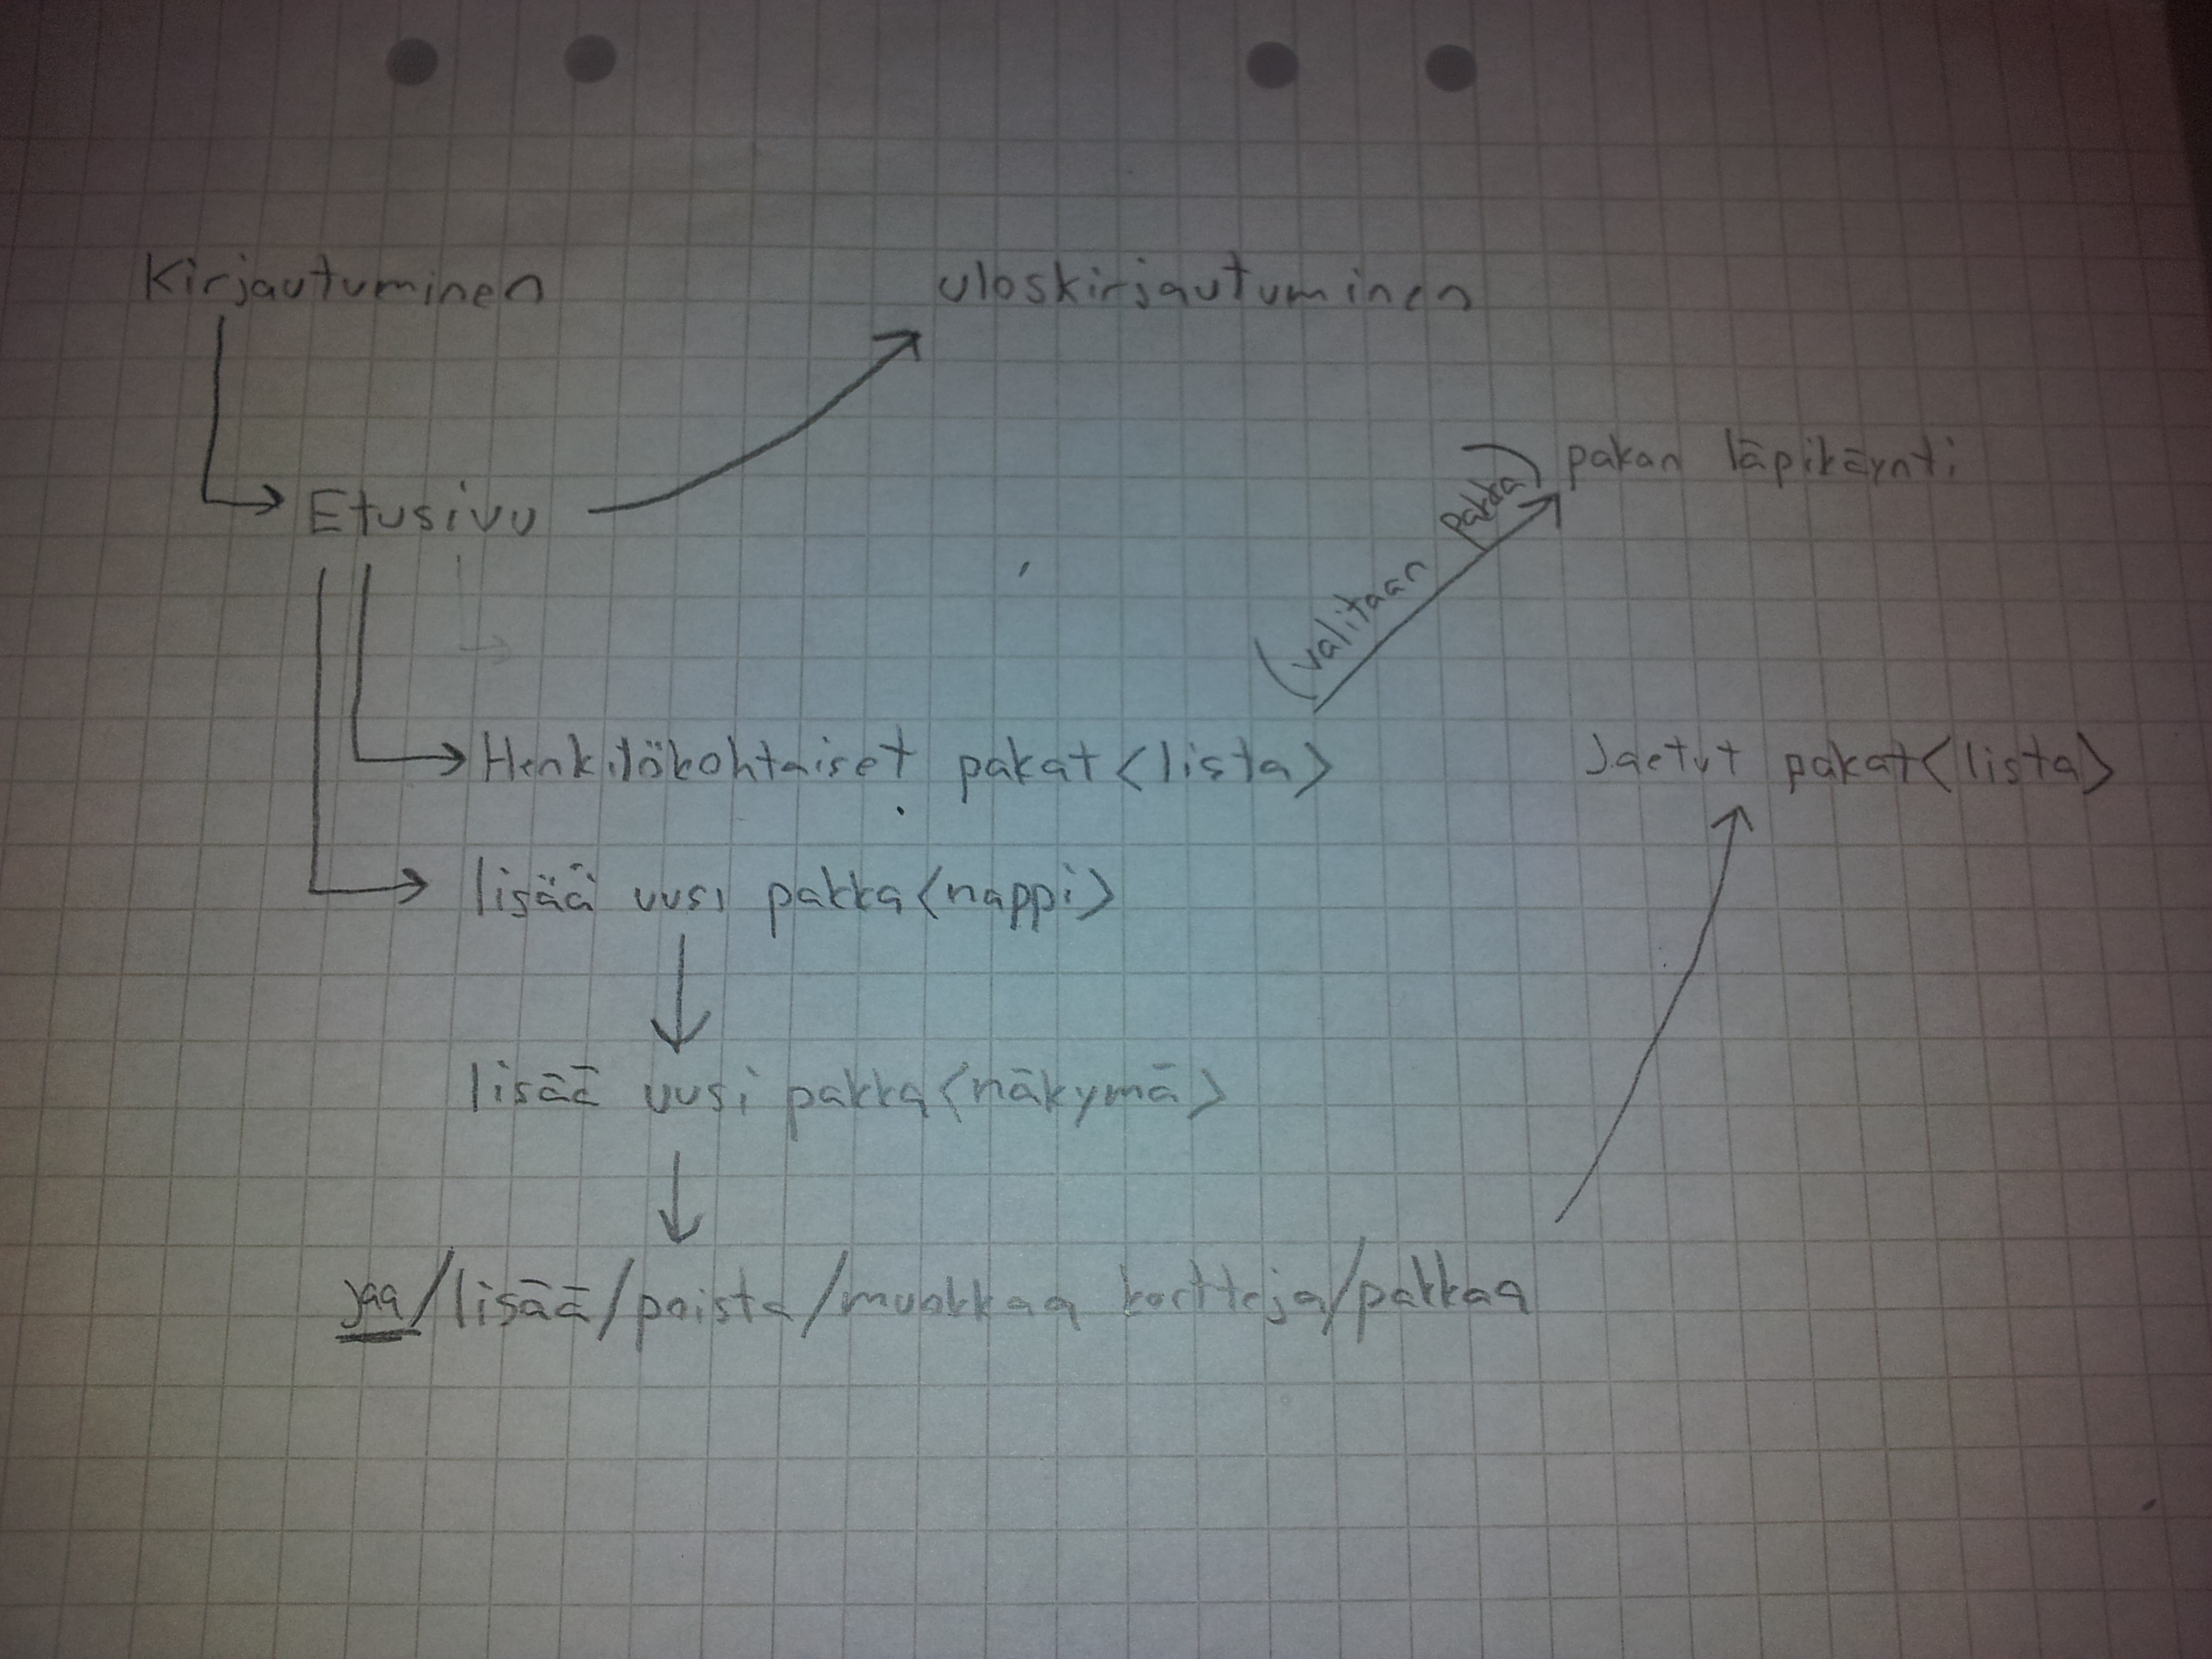 Kirjautuminen
uloskirjautuminen
pakan läpikäynti
Etusivu
(valitaan pakka)
Henkilökohtaiset pakat <lista>
Jaetut pakat <lista>
lisää uusi pakka <nappi>
lisää uusi pakka <näkymä>
jaa/lisää/poista/muokkaa kortteja/pakkaa